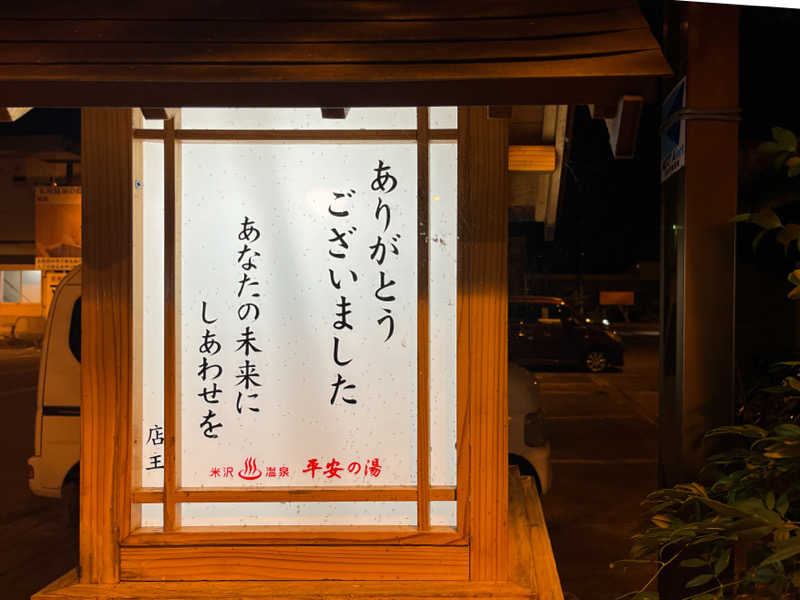 ありがとう
ございました
あなたの未来に
しあわせを
店主
米沢♨温泉 平安の湯